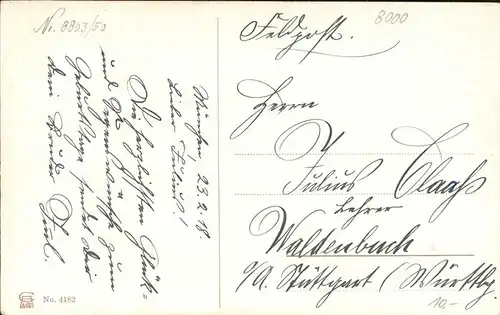 Nr. 8803/50
8000
München, 23.2.18.
Lieber Julius!
Die herzlichsten Glück=
und Segenswünsche zum
Geburtstage sendet Dir
Dein Bruder
Feldpost.
Herrn
Julius
Lehrer
Waldenbuch
O/A. Stuttgart (Württbg.
10.-
No. 4182